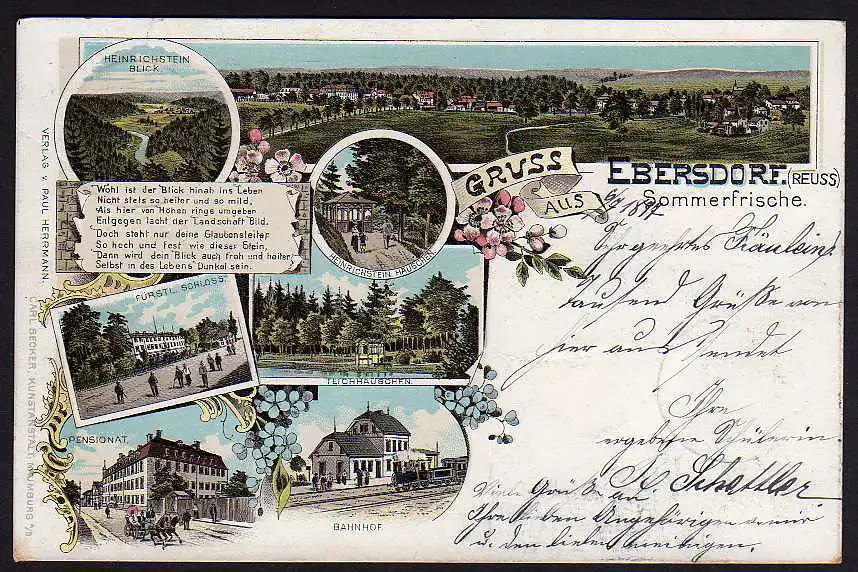 HEINRICHSTEIN
BLICK.
Wohl ist der Blick hinab ins Leben
Nicht stets so heiter und so mild,
Als hier von Höhen rings umgeben
Entgegen lacht der Landschaft Bild.
Doch steht nur deine Glaubensleiter
So hoch und fest wie dieser Stein,
Dann wird dein Blick auch froh und heiter
Selbst in des Lebens Dunkel sein.
HEINRICHSTEIN HÄUSCHEN
FÜRSTL. SCHLOSS.
TEICHHÄUSCHEN.
PENSIONAT.
BAHNHOF.
VERLAG v. PAUL HERRMANN.
CARL BECKER, KUNSTANSTALT, NAUMBURG a/S
GRUSS
AUS
EBERSDORF. (REUSS)
Sommerfrische.
1897
Sehr geehrtes Fräulein!
Tausend Grüße von
hier aus sendet
Ihre
ergebene Schülerin
Schattler
Viele Grüße an
Ihre lieben Angehörigen
u. den lieben